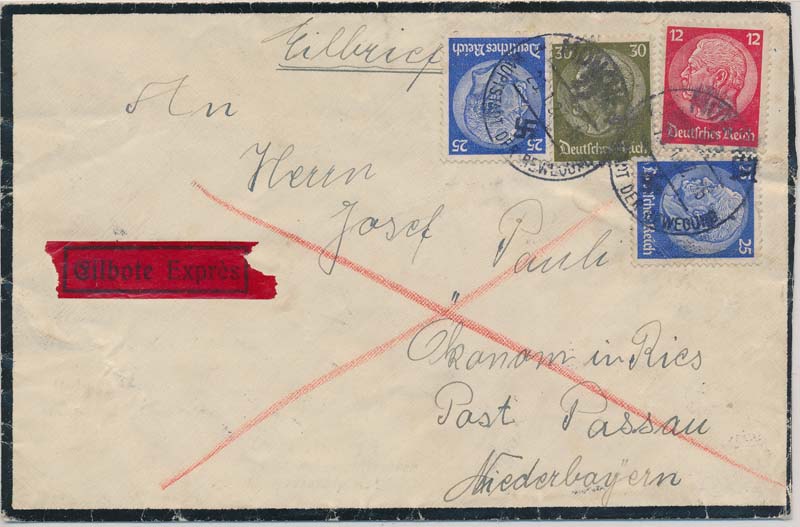 Eilbrief
Deutsches Reich
25
30 30
Deutsches Reich
12 12
Deutsches Reich
25
Deutsches Reich
MÜNCHEN
HAUPTSTADT DER BEWEGUNG
DER BEWEGUNG
An
Herrn
Josef Pauli
Eilbote Exprès
Ökonom in Ries
Post Passau
Niederbayern